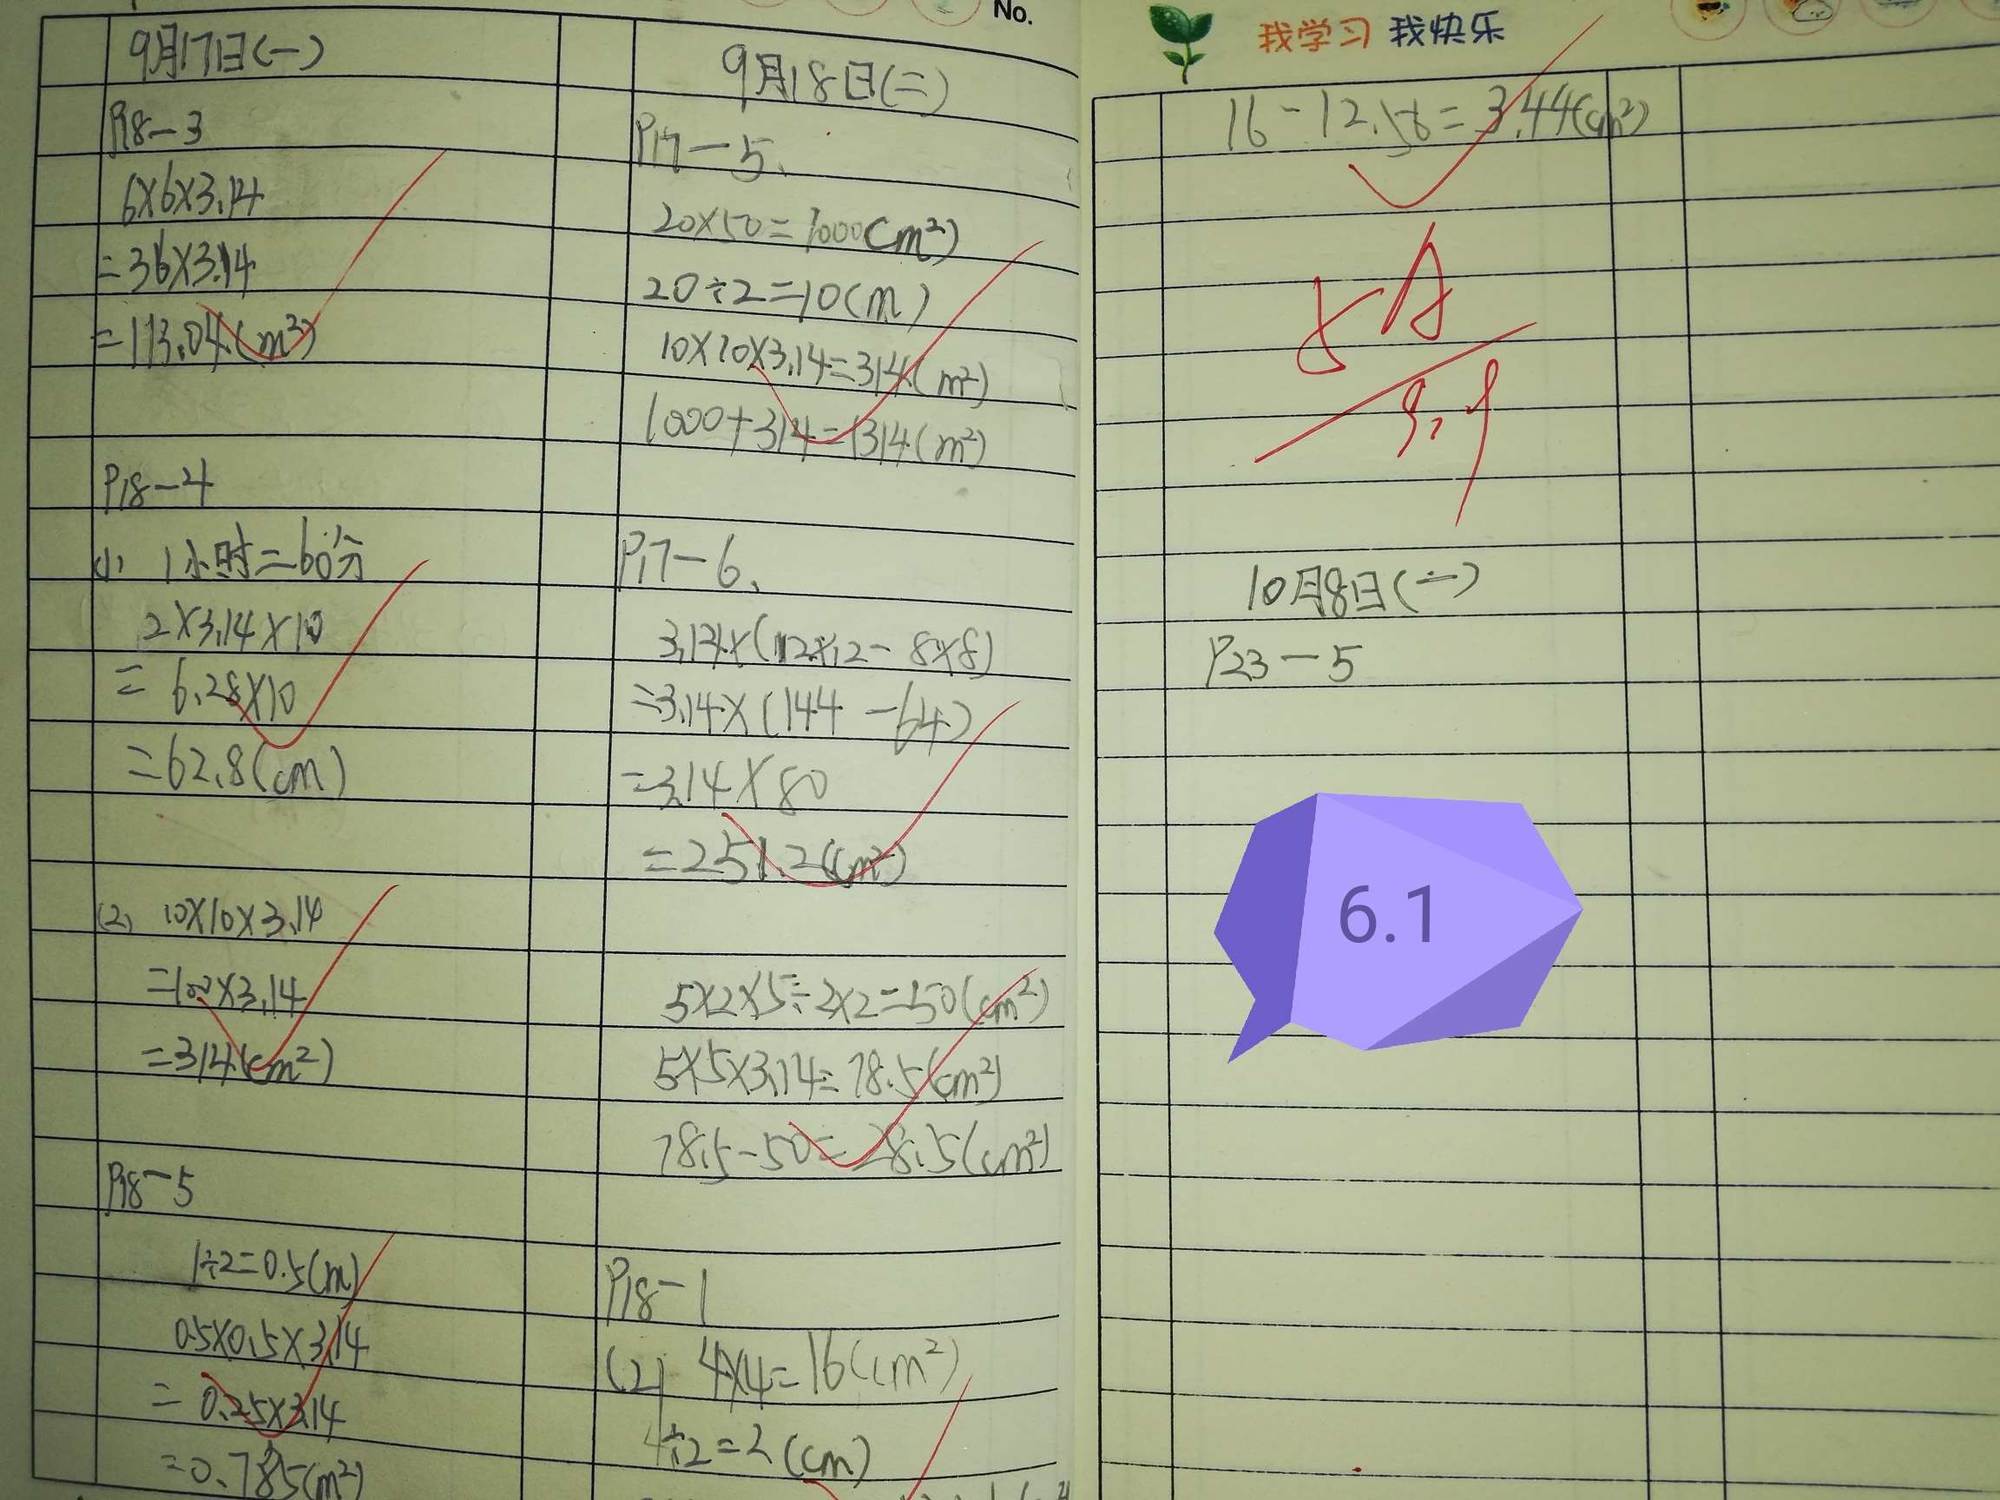 No.
9月17日(一)
P18-3
6×6×3.14
=36×3.14
=113.04(m²)
P18-4
(1) 1小时=60分
2×3.14×10
=6.28×10
=62.8(cm)
(2) 10×10×3.14
=100×3.14
=314(cm²)
P18-5
1÷2=0.5(m)
0.5×0.5×3.14
=0.25×3.14
=0.785(m²)
9月18日(二)
P17-5、
20×50=1000(m²)
20÷2=10(m)
10×10×3.14=314(m²)
1000+314=1314(m²)
P17-6、
3.14×(12×12-8×8)
=3.14×(144-64)
=3.14×80
=251.2(cm²)
5×2×5÷2×2=50(cm²)
5×5×3.14=78.5(cm²)
78.5-50=28.5(cm²)
P18-1
(2) 4×4=16(cm²)
4÷2=2(cm)
我学习 我快乐
16-12.56=3.44(cm²)
A
9.19
10月8日(一)
P23-5
6.1